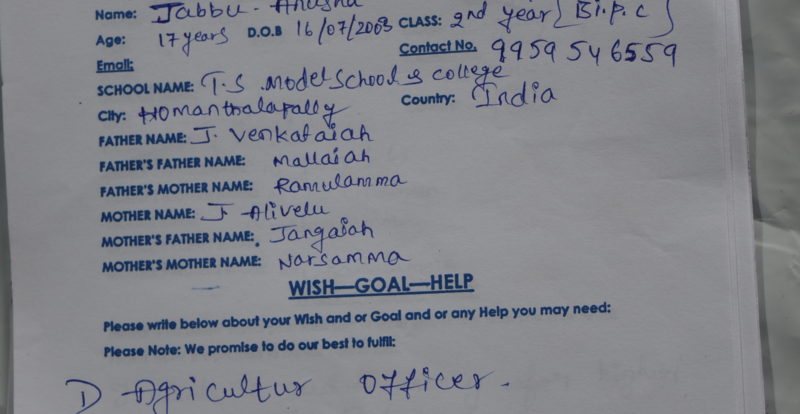 Name: Jabbu. Anusha
Age: 17 years D.O.B 16/07/2003 CLASS: 2nd year [Bi.p.c]
Email: Contact No. 9959546559
SCHOOL NAME: T.S. Model School & college
City: Homanthalapally Country: India
FATHER NAME: J. Venkataiah
FATHER'S FATHER NAME: Mallaiah
FATHER'S MOTHER NAME: Ramulamma
MOTHER NAME: J Alivelu
MOTHER'S FATHER NAME: Jangaiah
MOTHER'S MOTHER NAME: Narsamma
WISH—GOAL—HELP
Please write below about your Wish and or Goal and or any Help you may need:
Please Note: We promise to do our best to fulfil:
1) Agricultur Officer.